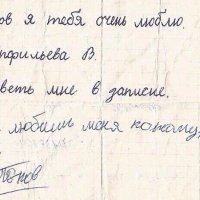 ов я тебя очень люблю.
нфильева В.
веть мне в записке.
любишь меня потому,
понов